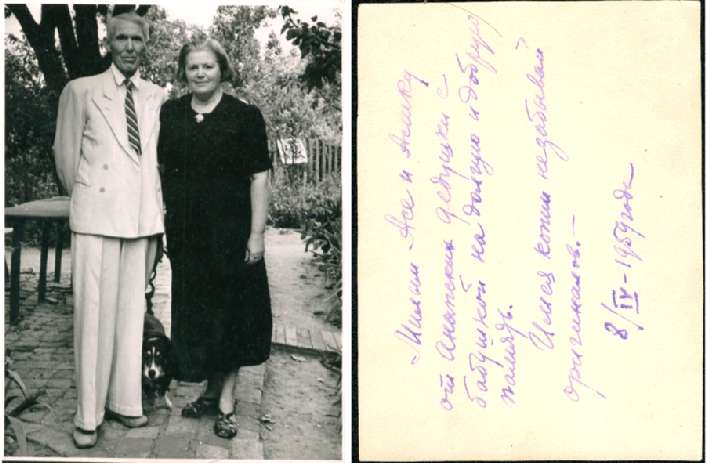 Милым Асе и Алику
от Анапских дедушки с
бабушкой на долгую и добрую
память.
Имея копии незабывай
оригиналов. —
8/IV-1959 года